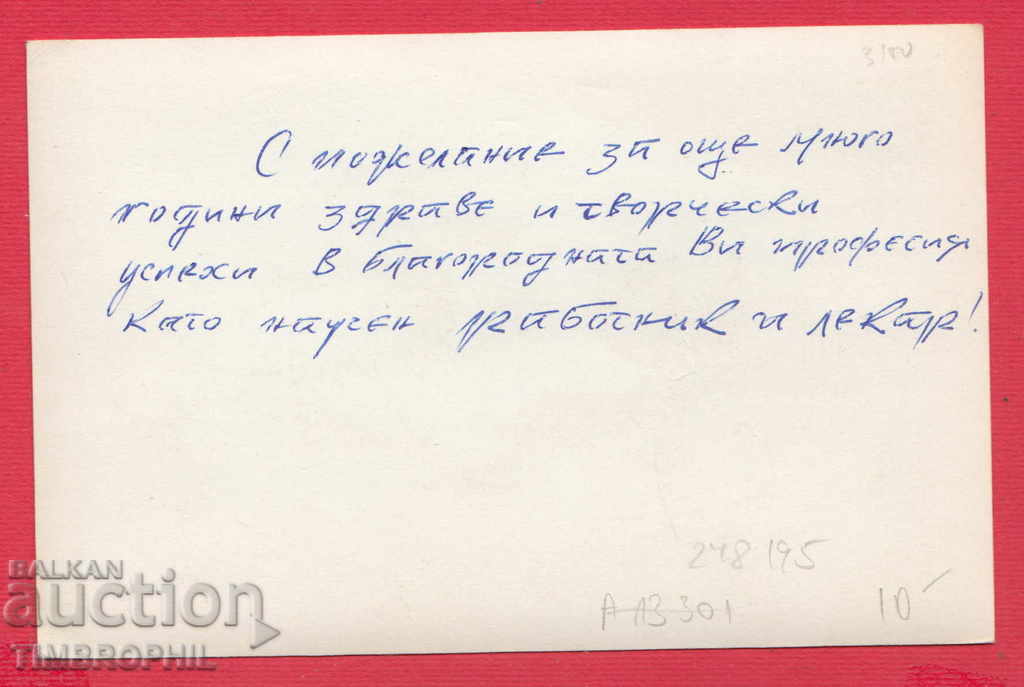 3/80
С пожелание за още много
години здраве и творчески
успехи в благородната Ви професия
като научен работник и лектор!
248195
А 13301
10
BALKAN
auction
TIMBROPHIL